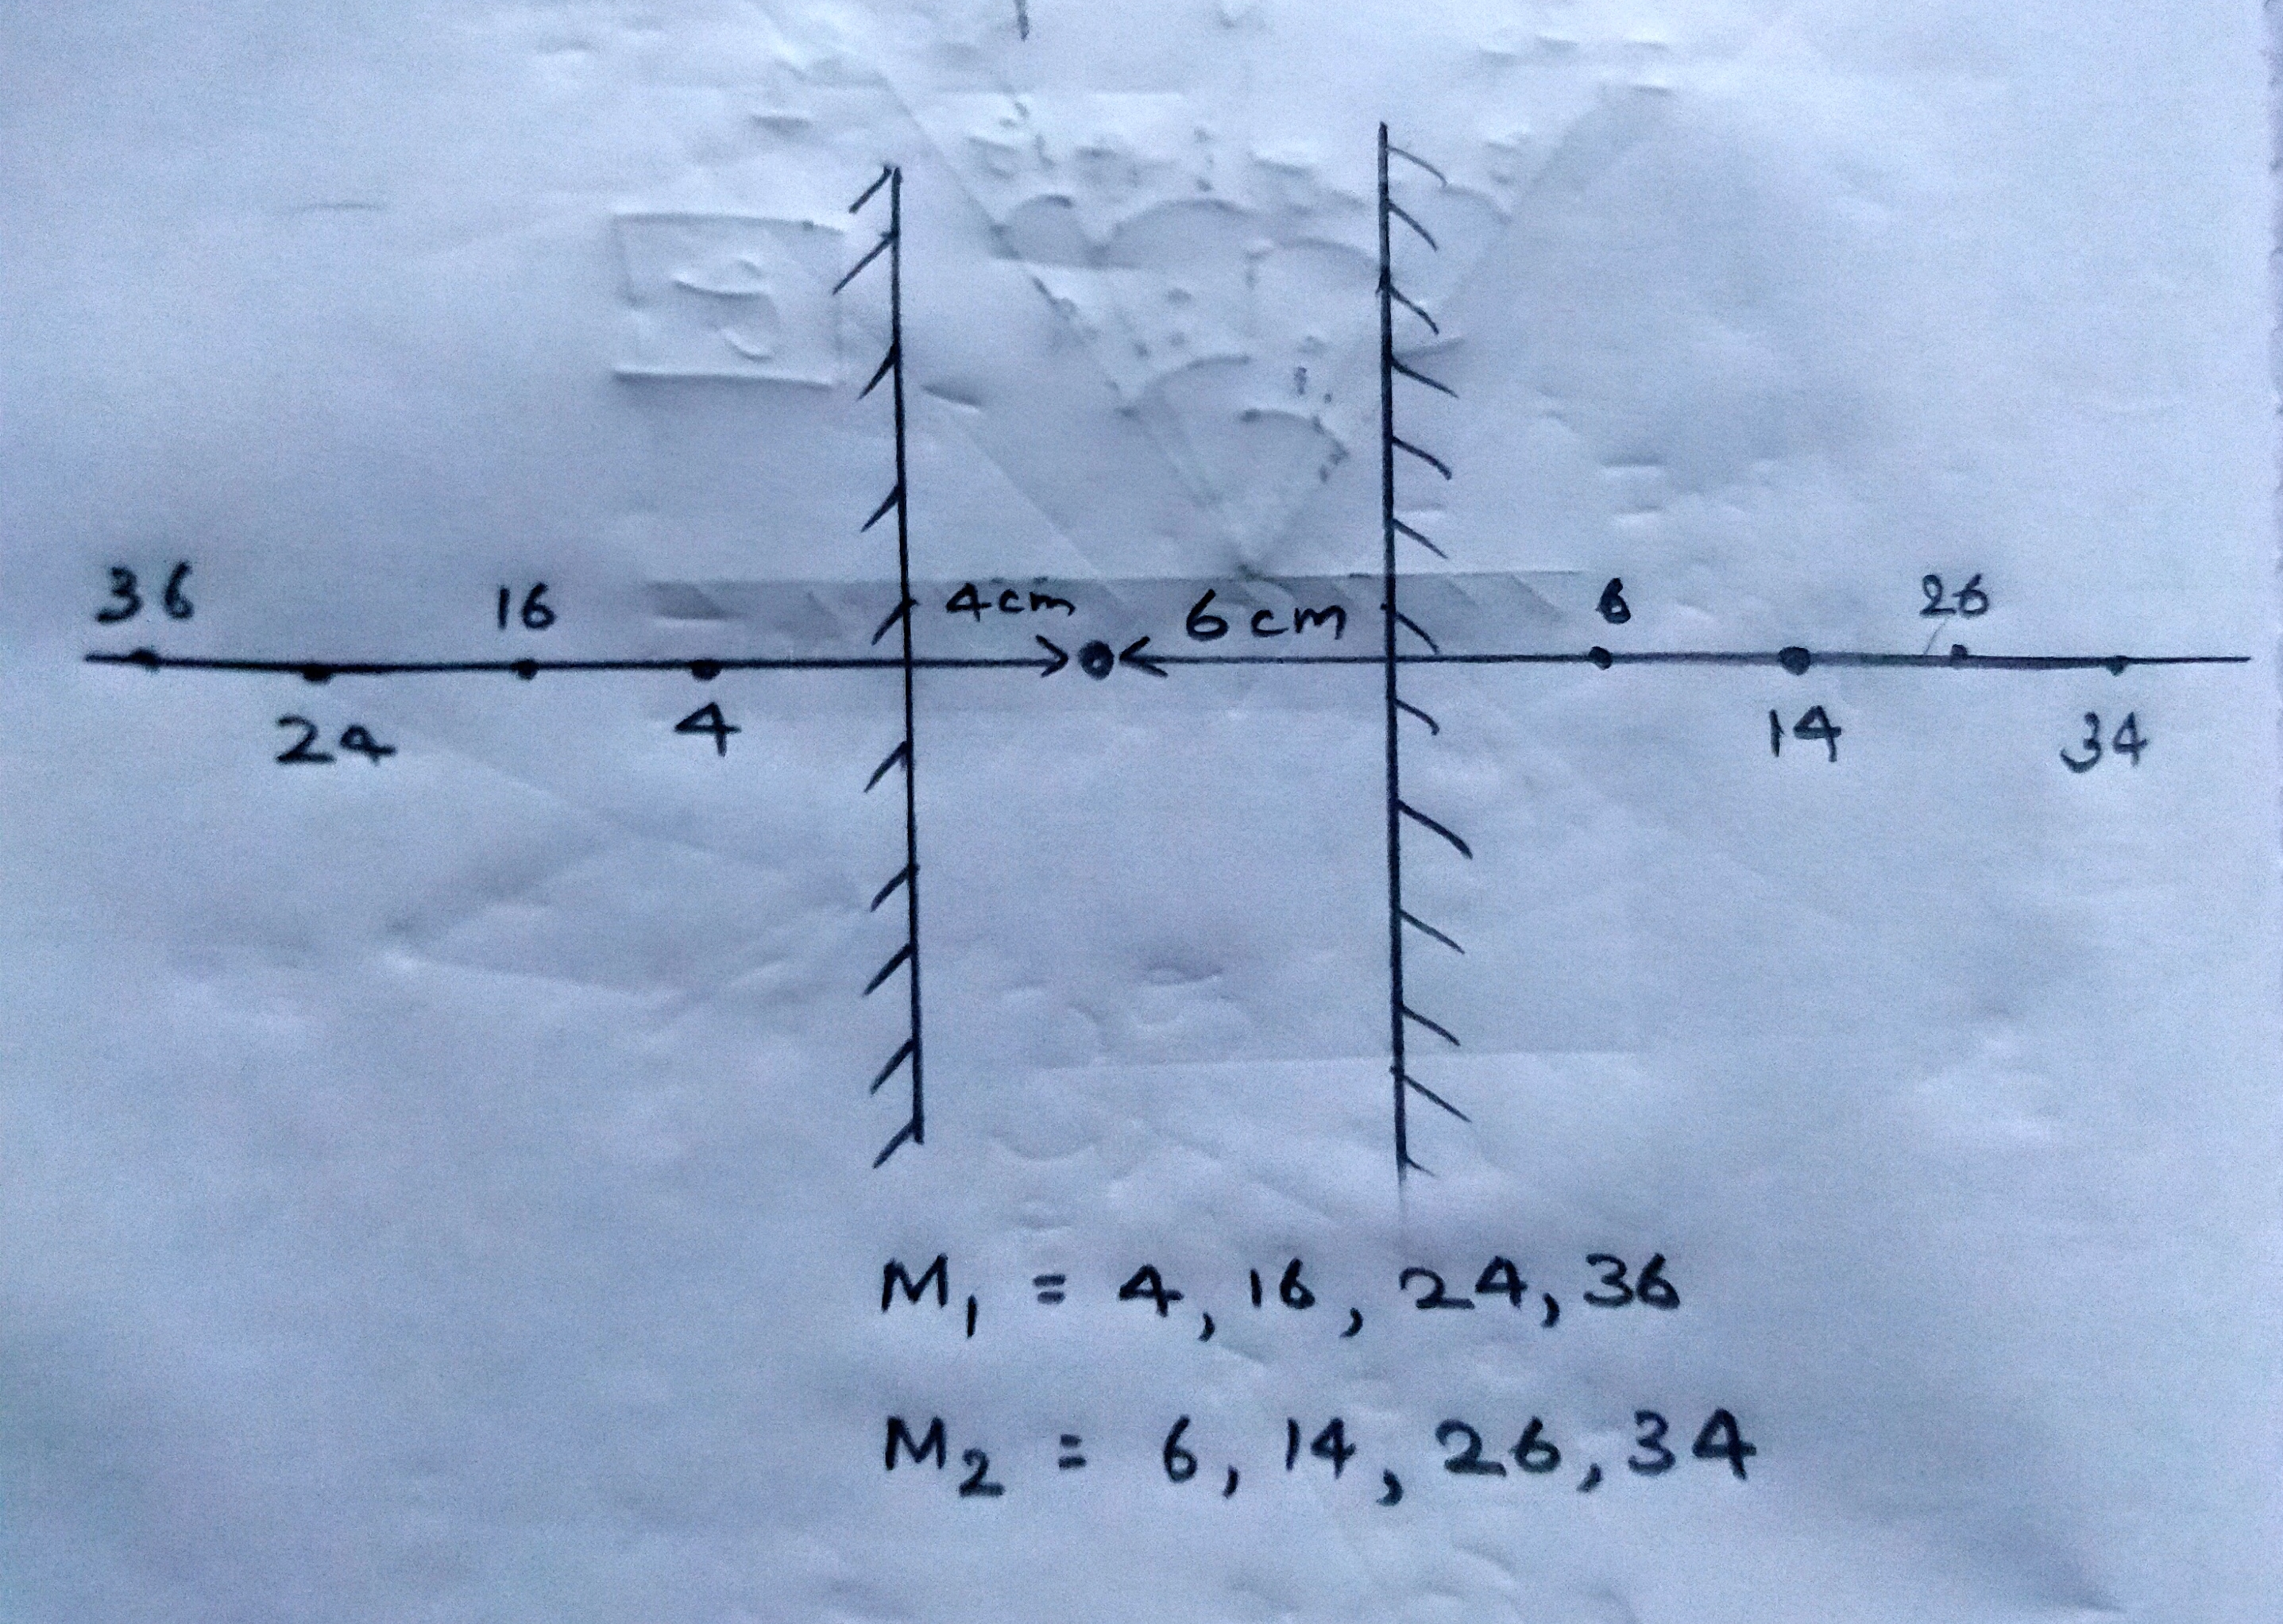 36 16 4cm 6cm 6 26
24 4 14 34
M₁ = 4, 16, 24, 36
M₂ = 6, 14, 26, 34